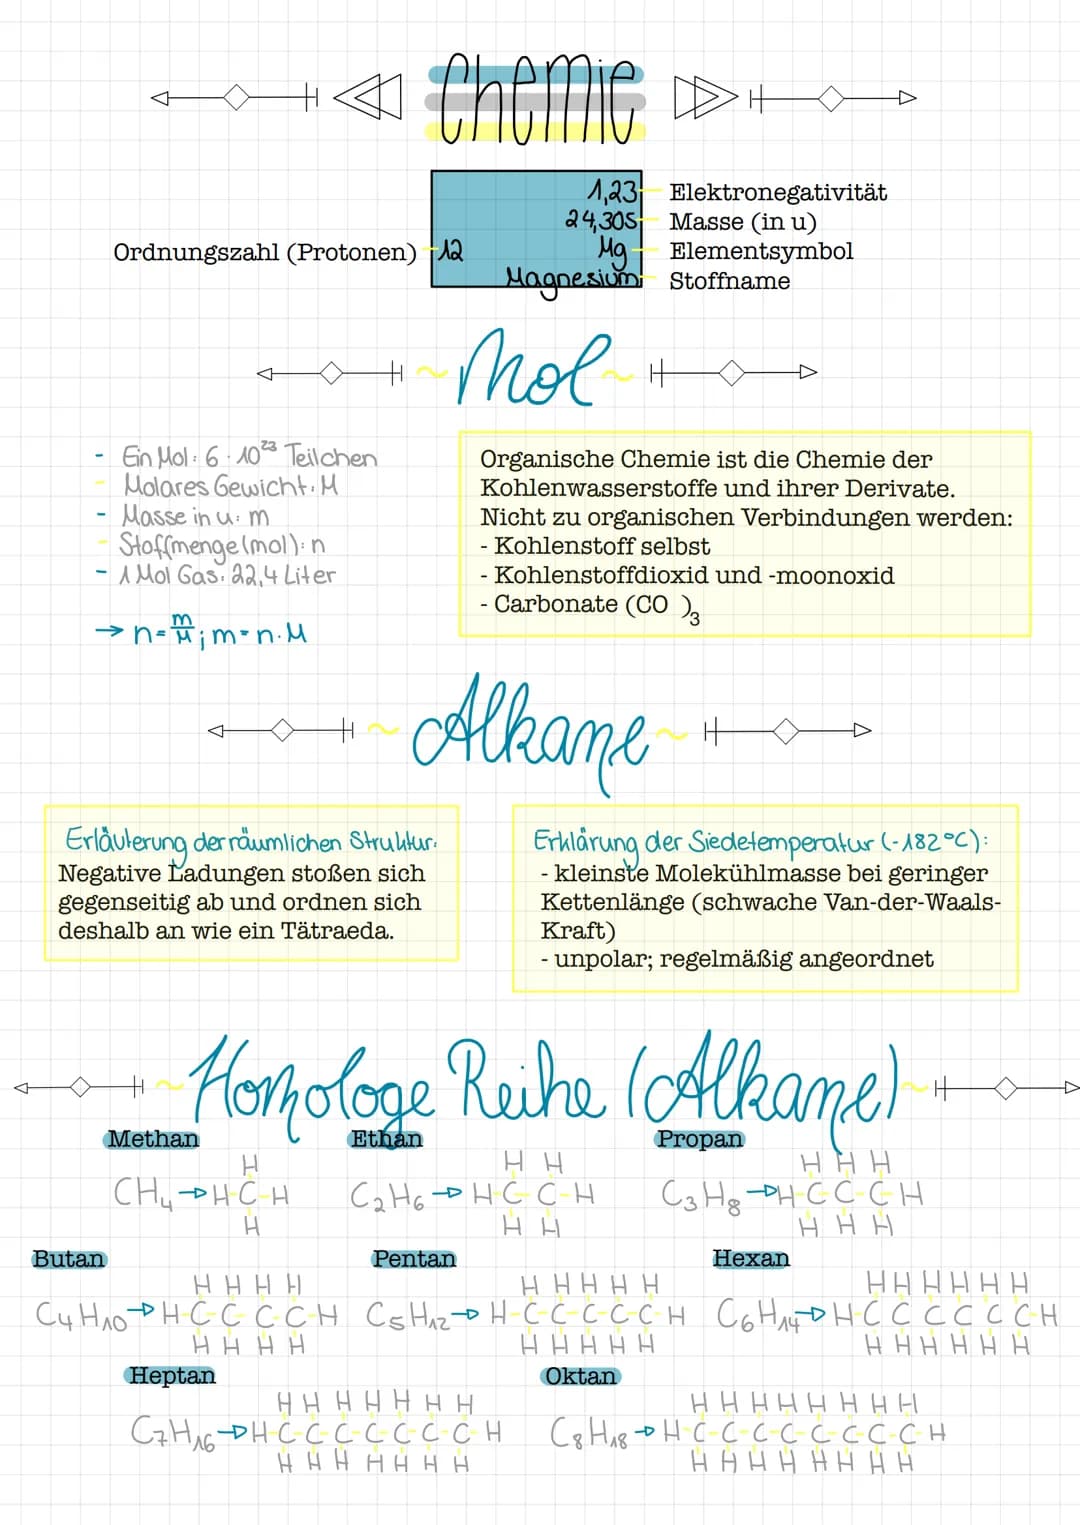 Chemie
1,23 Elektronegativität
24,305 Masse (in u)
Ordnungszahl (Protonen) 12 Mg Elementsymbol
Magnesium Stoffname
~Mol~
- Ein Mol: 6 · 10²³ Teilchen
- Molares Gewicht: M
- Masse in u: m
- Stoffmenge (mol): n
- 1 Mol Gas: 22,4 Liter
→ n = m/M ; m = n · M
Organische Chemie ist die Chemie der
Kohlenwasserstoffe und ihrer Derivate.
Nicht zu organischen Verbindungen werden:
- Kohlenstoff selbst
- Kohlenstoffdioxid und -moonoxid
- Carbonate (CO )₃
~Alkane~
Erläuterung der räumlichen Struktur:
Negative Ladungen stoßen sich
gegenseitig ab und ordnen sich
deshalb an wie ein Tätraeda.
Erklärung der Siedetemperatur (-182°C):
- kleinste Molekühlmasse bei geringer
Kettenlänge (schwache Van-der-Waals-
Kraft)
- unpolar; regelmäßig angeordnet
~Homologe Reihe (Alkane)~
Methan
H
CH₄ → H-C-H
H
Ethan
H H
C₂H₆ → H-C-C-H
H H
Propan
H H H
C₃H₈ → H-C-C-C-H
H H H
Butan
H H H H
C₄H₁₀ → H-C-C-C-C-H
H H H H
Pentan
H H H H H
C₅H₁₂ → H-C-C-C-C-C-H
H H H H H
Hexan
H H H H H H
C₆H₁₄ → H-C-C-C-C-C-C-H
H H H H H H
Heptan
H H H H H H H
C₇H₁₆ → H-C-C-C-C-C-C-C-H
H H H H H H H
Oktan
H H H H H H H H
C₈H₁₈ → H-C-C-C-C-C-C-C-C-H
H H H H H H H H